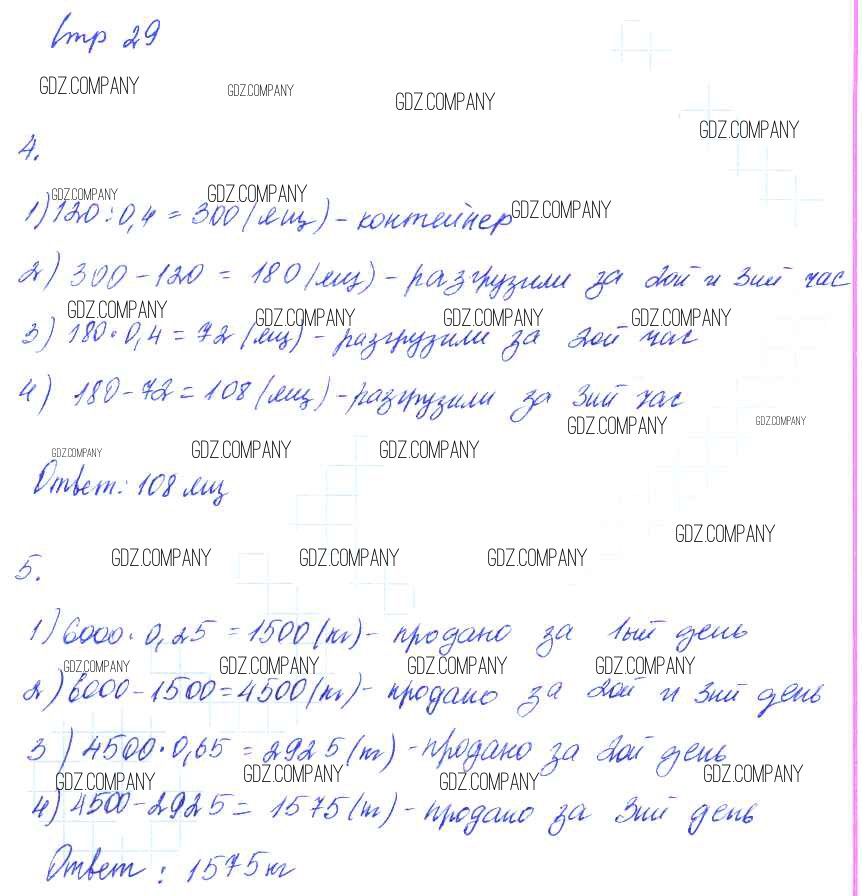 Стр 29
GDZ.COMPANY GDZ.COMPANY GDZ.COMPANY GDZ.COMPANY
4.
GDZ.COMPANY GDZ.COMPANY GDZ.COMPANY
1) 120 : 0,4 = 300 (ящ) - контейнер
2) 300 - 120 = 180 (ящ) - разгрузили за 2ой и 3ий час
GDZ.COMPANY GDZ.COMPANY GDZ.COMPANY GDZ.COMPANY
3) 180 · 0,4 = 72 (ящ) - разгрузили за 2ой час
4) 180 - 72 = 108 (ящ) - разгрузили за 3ий час
GDZ.COMPANY GDZ.COMPANY
GDZ.COMPANY GDZ.COMPANY GDZ.COMPANY
Ответ: 108 ящ
GDZ.COMPANY
GDZ.COMPANY GDZ.COMPANY GDZ.COMPANY
5.
1) 6000 · 0,25 = 1500 (кг) - продано за 1ый день
GDZ.COMPANY GDZ.COMPANY GDZ.COMPANY GDZ.COMPANY
2) 6000 - 1500 = 4500 (кг) - продано за 2ой и 3ий день
3) 4500 · 0,65 = 2925 (кг) - продано за 2ой день
GDZ.COMPANY GDZ.COMPANY GDZ.COMPANY GDZ.COMPANY
4) 4500 - 2925 = 1575 (кг) - продано за 3ий день
Ответ : 1575 кг